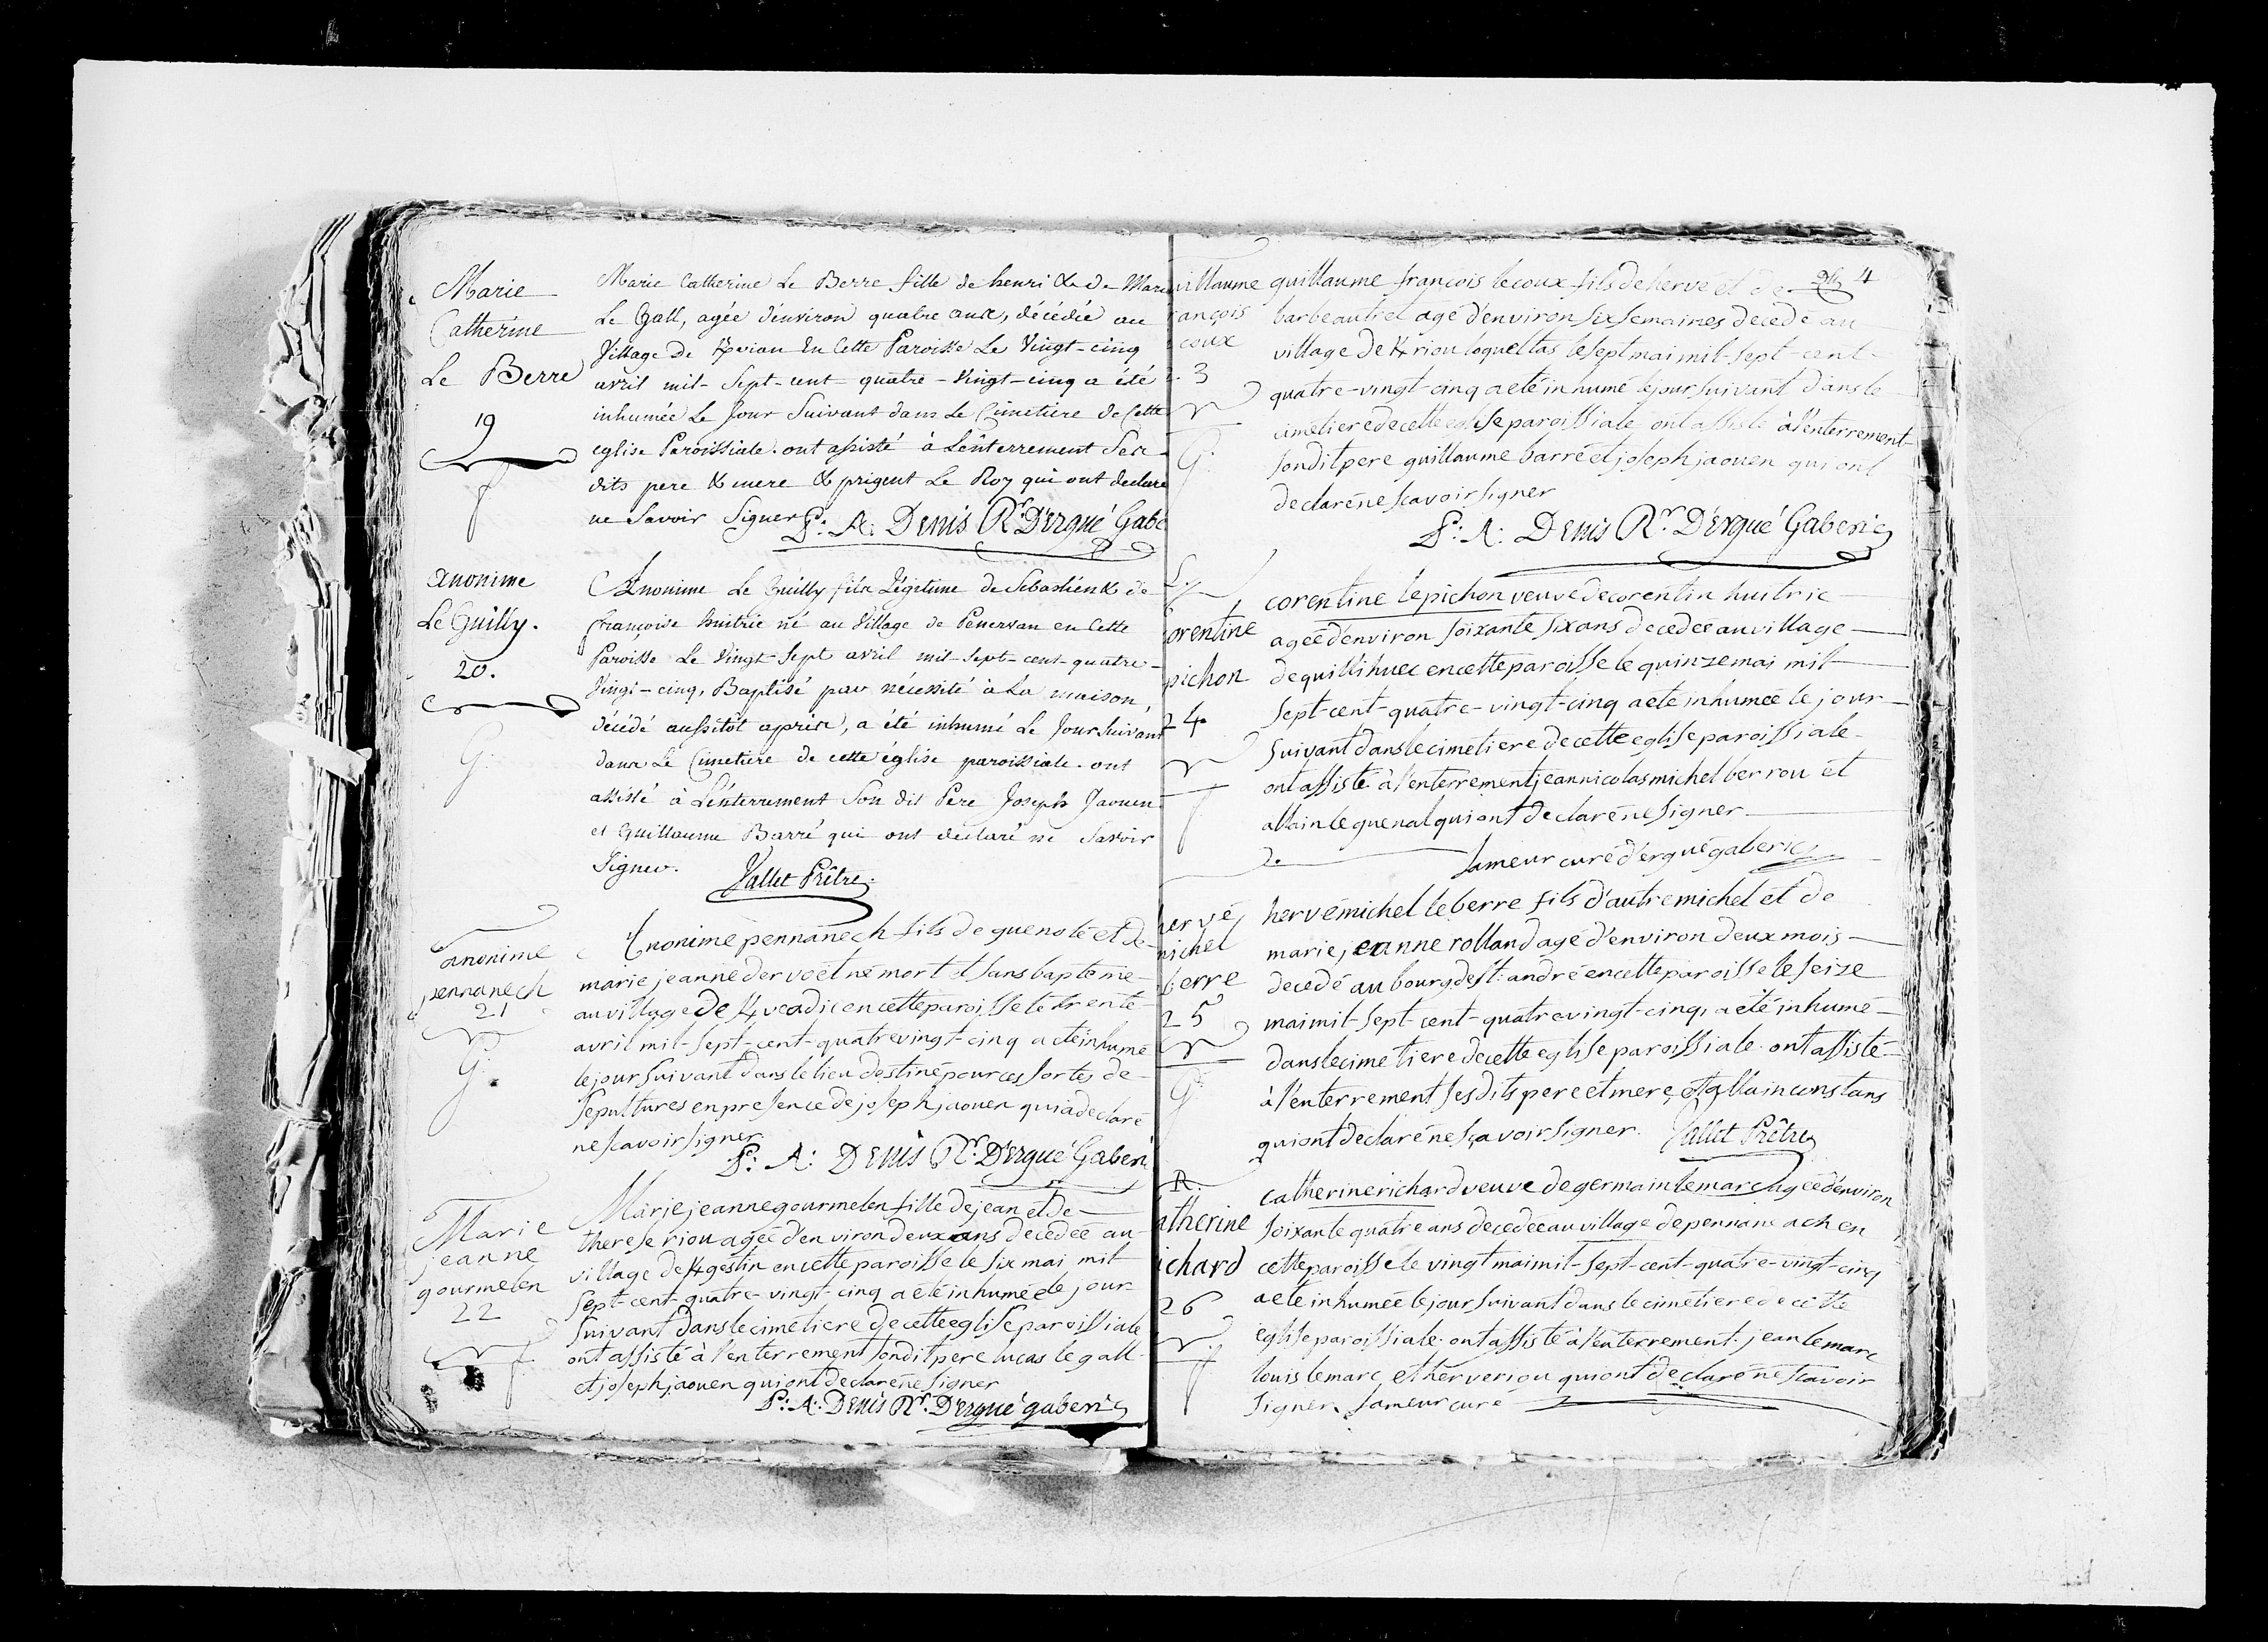 Marie
Catherine
Le Berre
19
Marie Catherine Le Berre fille de henri & de Marie
Le Gall, agée d'environ quatre ans, décédée au
Village de en Cette Paroisse Le Vingt-cinq
avril mil-Sept-cent quatre-Vingt-cinq a été
inhumée Le Jour Suivant dans Le Cimetiere de Cette
eglise Paroissiale. ont assisté à L'enterrement Ses
dits pere & mere & prigent Le Roy qui ont declaré
ne Savoir Signer P: A: Denis Rr. D'Ergué Gabe
anonime
Le Guilly.
20.
G.
Anonime Le Guilly fils Légitime de Sébastien & de
françoise huitric né au Village de Penervan en Cette
Paroisse Le Vingt-Sept avril mil-Sept-cent-quatre-
Vingt-cinq, Baptisé par nécessité à La maison,
décédé aussitôt après, a été inhumé Le Jour Suivant
dans Le Cimetiere de cette église paroissiale. ont
assisté à L'enterrement Son dit Pere Joseph Jaouen
et Guillaume Barré qui ont declaré ne Savoir
Signer. Jallet Prêtre.
anonime
pennanech
21
G.
Anonime pennanech fils de guenolé et de
marie jeanne dervoët né mort et sans baptême
au village de en cette paroisse le trente
avril mil-sept-cent-quatrevingt-cinq a eté inhumé
le jour suivant dans le lieu destiné pour ces sortes de
sepultures en presence de joseph jaouen qui a declaré
ne scavoir signer
P: A: Denis Rr. D'Ergué Gaberi
Marie
jeanne
gourmelen
22
Marie jeanne gourmelen fille de jean et de
therese riou agée d'environ deux ans decedée au
village de Kgestin en cette paroisse le six mai mil
sept-cent-quatre-vingt-cinq a eté inhumée le jour
suivant dans le cimetiere de cette eglise paroissiale
ont assisté à l'enterrement son dit pere lucas le gall
et joseph jaouen qui ont declaré ne signer
P: A: Denis Rr. D'Ergué gaberic
uillaume
rançois
coux
3
G.
4
guillaume françois lecoux fils de herve et de
barbe autret agé d'environ six semaines decedé au
village de Kriou loqueltas le sept mai mil-sept-cent-
quatre-vingt-cinq a eté inhumé le jour suivant dans le
cimetiere de cette eglise paroissiale ont assisté à l'enterrement
son dit pere guillaume barré et joseph jaouen qui ont
declaré ne scavoir signer
P: A: Denis Rr. D'Ergué Gaberic
orentine
pichon
24
corentine le pichon veuve de corentin huitric
agée d'environ soixante six ans decedée au village
de quillihuec en cette paroisse le quinze mai mil
sept-cent-quatre-vingt-cinq a eté inhumée le jour
suivant dans le cimetiere de cette eglise paroissiale
ont assisté à l'enterrement jean nicolas michel berrou et
allain le guenal qui ont declaré ne signer
Lameur curé d'ergué gaberic
hervé
michel
berre
25
G
hervé michel le berre fils d'autre michel et de
marie jeanne rolland agé d'environ deux mois
decedé au bourg de st: andré en cette paroisse le seize
mai mil-sept-cent-quatrevingt-cinq, a été inhumé
dans le cimetiere de cette eglise paroissiale. ont assisté
à l'enterrement ses dits pere et mere, et allain constans
qui ont declaré ne sçavoir signer. Jallet Prêtre
R.
atherine
ichard
26
catherine richard veuve de germain le marc agée d'environ
soixante quatre ans decedée au village de pennanec'h en
cette paroisse le vingt mai mil-sept-cent-quatre-vingt-cinq
a eté inhumée le jour suivant dans le cimetiere de cette
eglise paroissiale. ont assisté à l'enterrement. jean le marc
louis le marc, et herve riou qui ont declaré ne scavoir
signer. Lameur curé